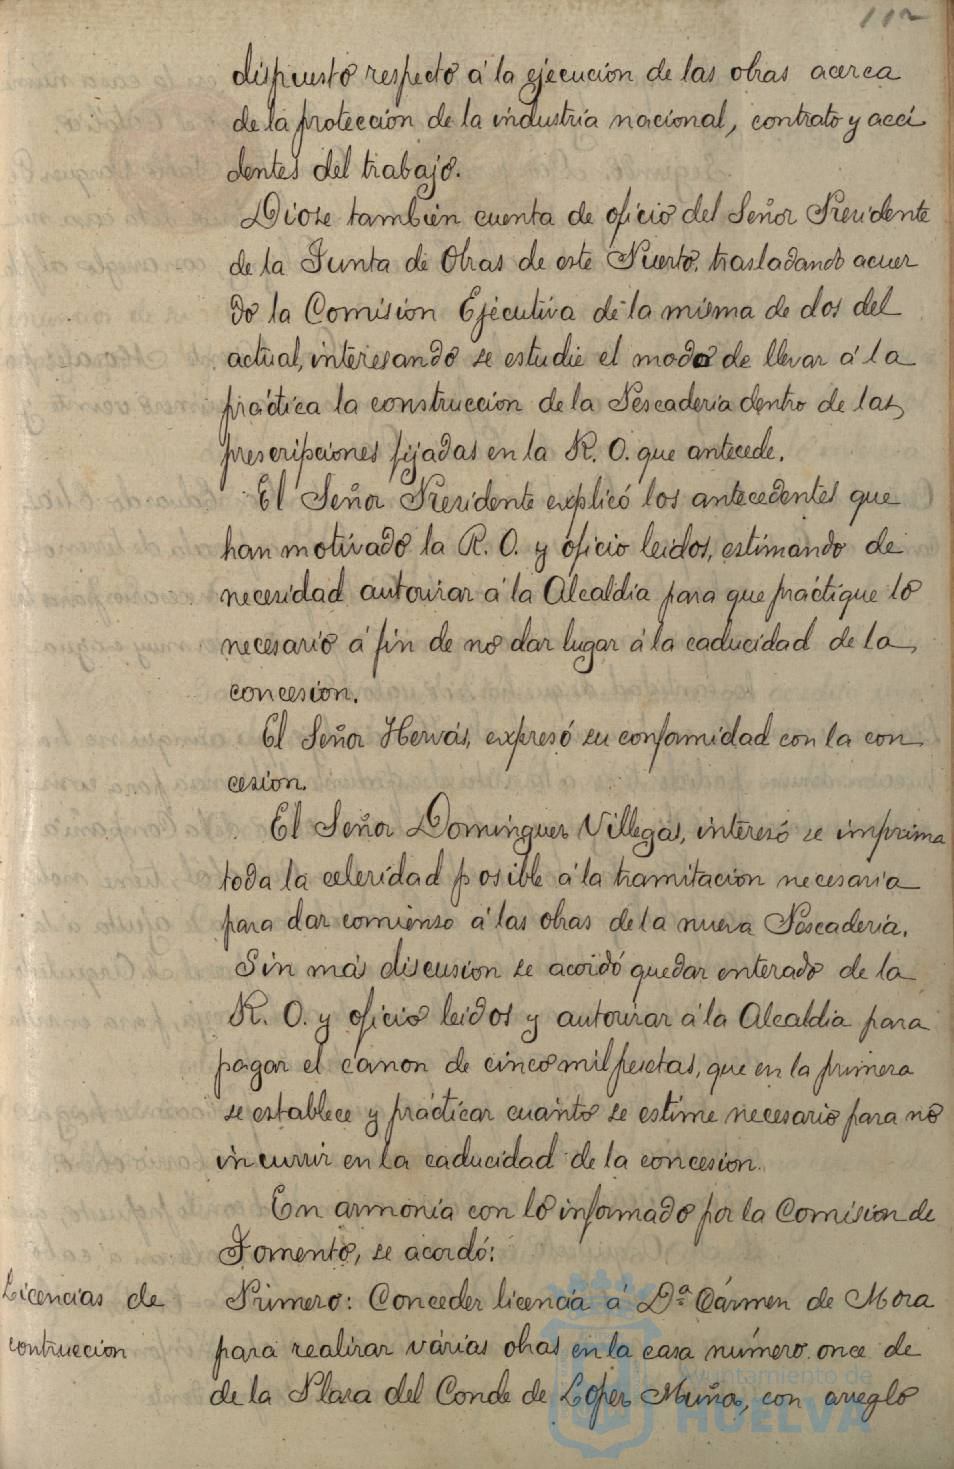 112
dispuesto respecto á la ejecución de las obras acerca
de la protección de la industria nacional, contrato y acci
dentes del trabajo.
Diose también cuenta de oficio del Señor Presidente
de la Junta de Obras de este Puerto, trasladando acuer
do la Comisión Ejecutiva de la misma de dos del
actual, interesando se estudie el modo de llevar á la
práctica la construcción de la Pescadería dentro de las
prescripciones fijadas en la R. O. que antecede.
El Señor Presidente explicó los antecedentes que
han motivado la R. O. y oficio leidos, estimando de
necesidad autorizar á la Alcaldía para que practique lo
necesario á fin de no dar lugar á la caducidad de la
concesión.
El Señor Hervás, expresó su conformidad con la con
cesión.
El Señor Dominguez Villegas, interesó se imprima
toda la celeridad posible á la tramitación necesaria
para dar comienso á las obras de la nueva Pescadería.
Sin más discusion se acordó quedar enterado de la
R. O. y oficio leidos y autorizar á la Alcaldia para
pagar el cánon de cinco mil pesetas, que en la primera
se establece y practicar cuanto se estime necesario para no
incurrir en la caducidad de la concesión.
En armonía con lo informado por la Comisión de
Fomento, se acordó:
Licencias de
contruccion
Primero: Conceder licencia á D.ª Cármen de Mora
para realizar várias obras en la casa número once de
de la Plasa del Conde de López Muñoz, con arreglo
Ayuntamiento de
HUELVA